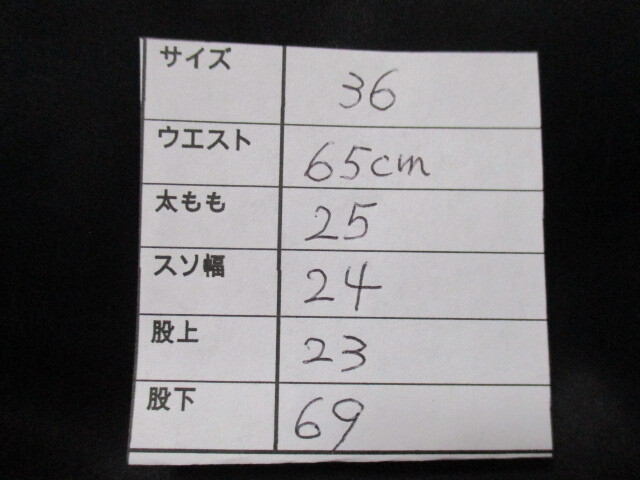 サイズ 36
ウエスト 65cm
太もも 25
スソ幅 24
股上 23
股下 69